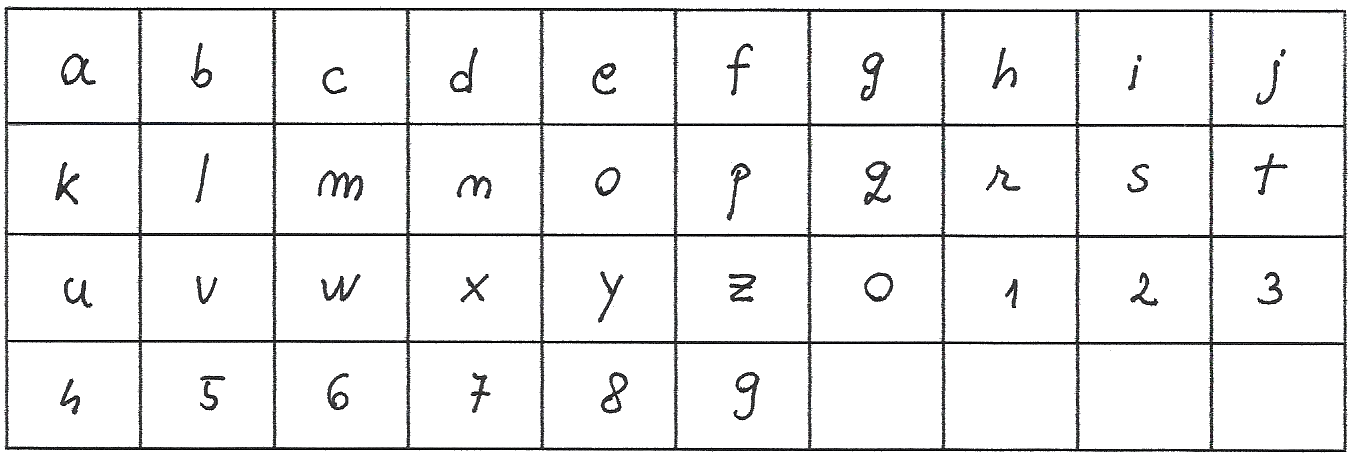 a b c d e f g h i j
k l m n o p q r s t
u v w x y z 0 1 2 3
4 5 6 7 8 9